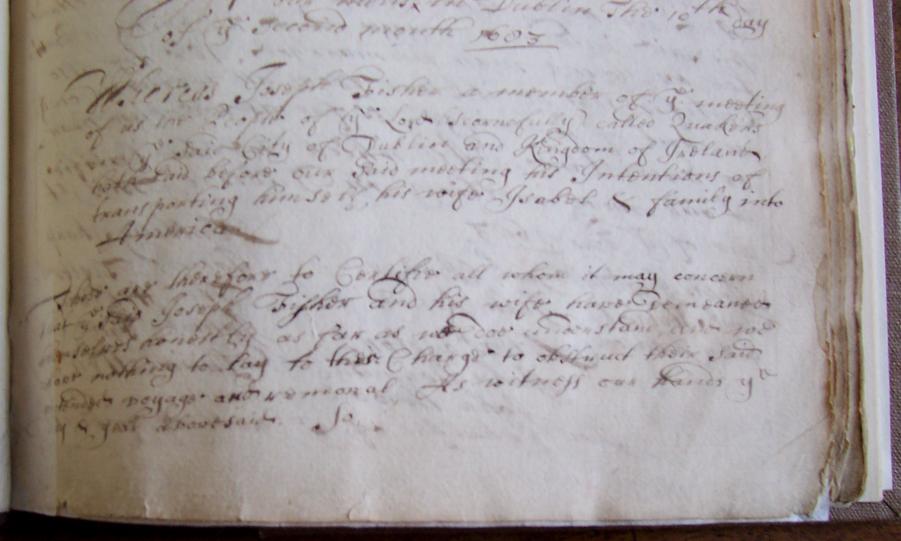 our in Dublin the 10th day
of ye Second month 1683
Whereas Joseph Fisher a member of ye meeting
of us the People of ye Lord scornefully called Quakers
ye said Citty of Dublin and Kingdom of Ireland
hath laid before our said meeting his Intentions of
transporting himself his wife Isabel & family into
America
These are therefore to Certifie all whom it may concern
that ye said Joseph Fisher and his wife have Demeaned
themselves honestly as far as we doe understand and we
have nothing to Lay to their Charge to obstruct their said
intended voyage and removal As witness our hands ye
& year abovesaid